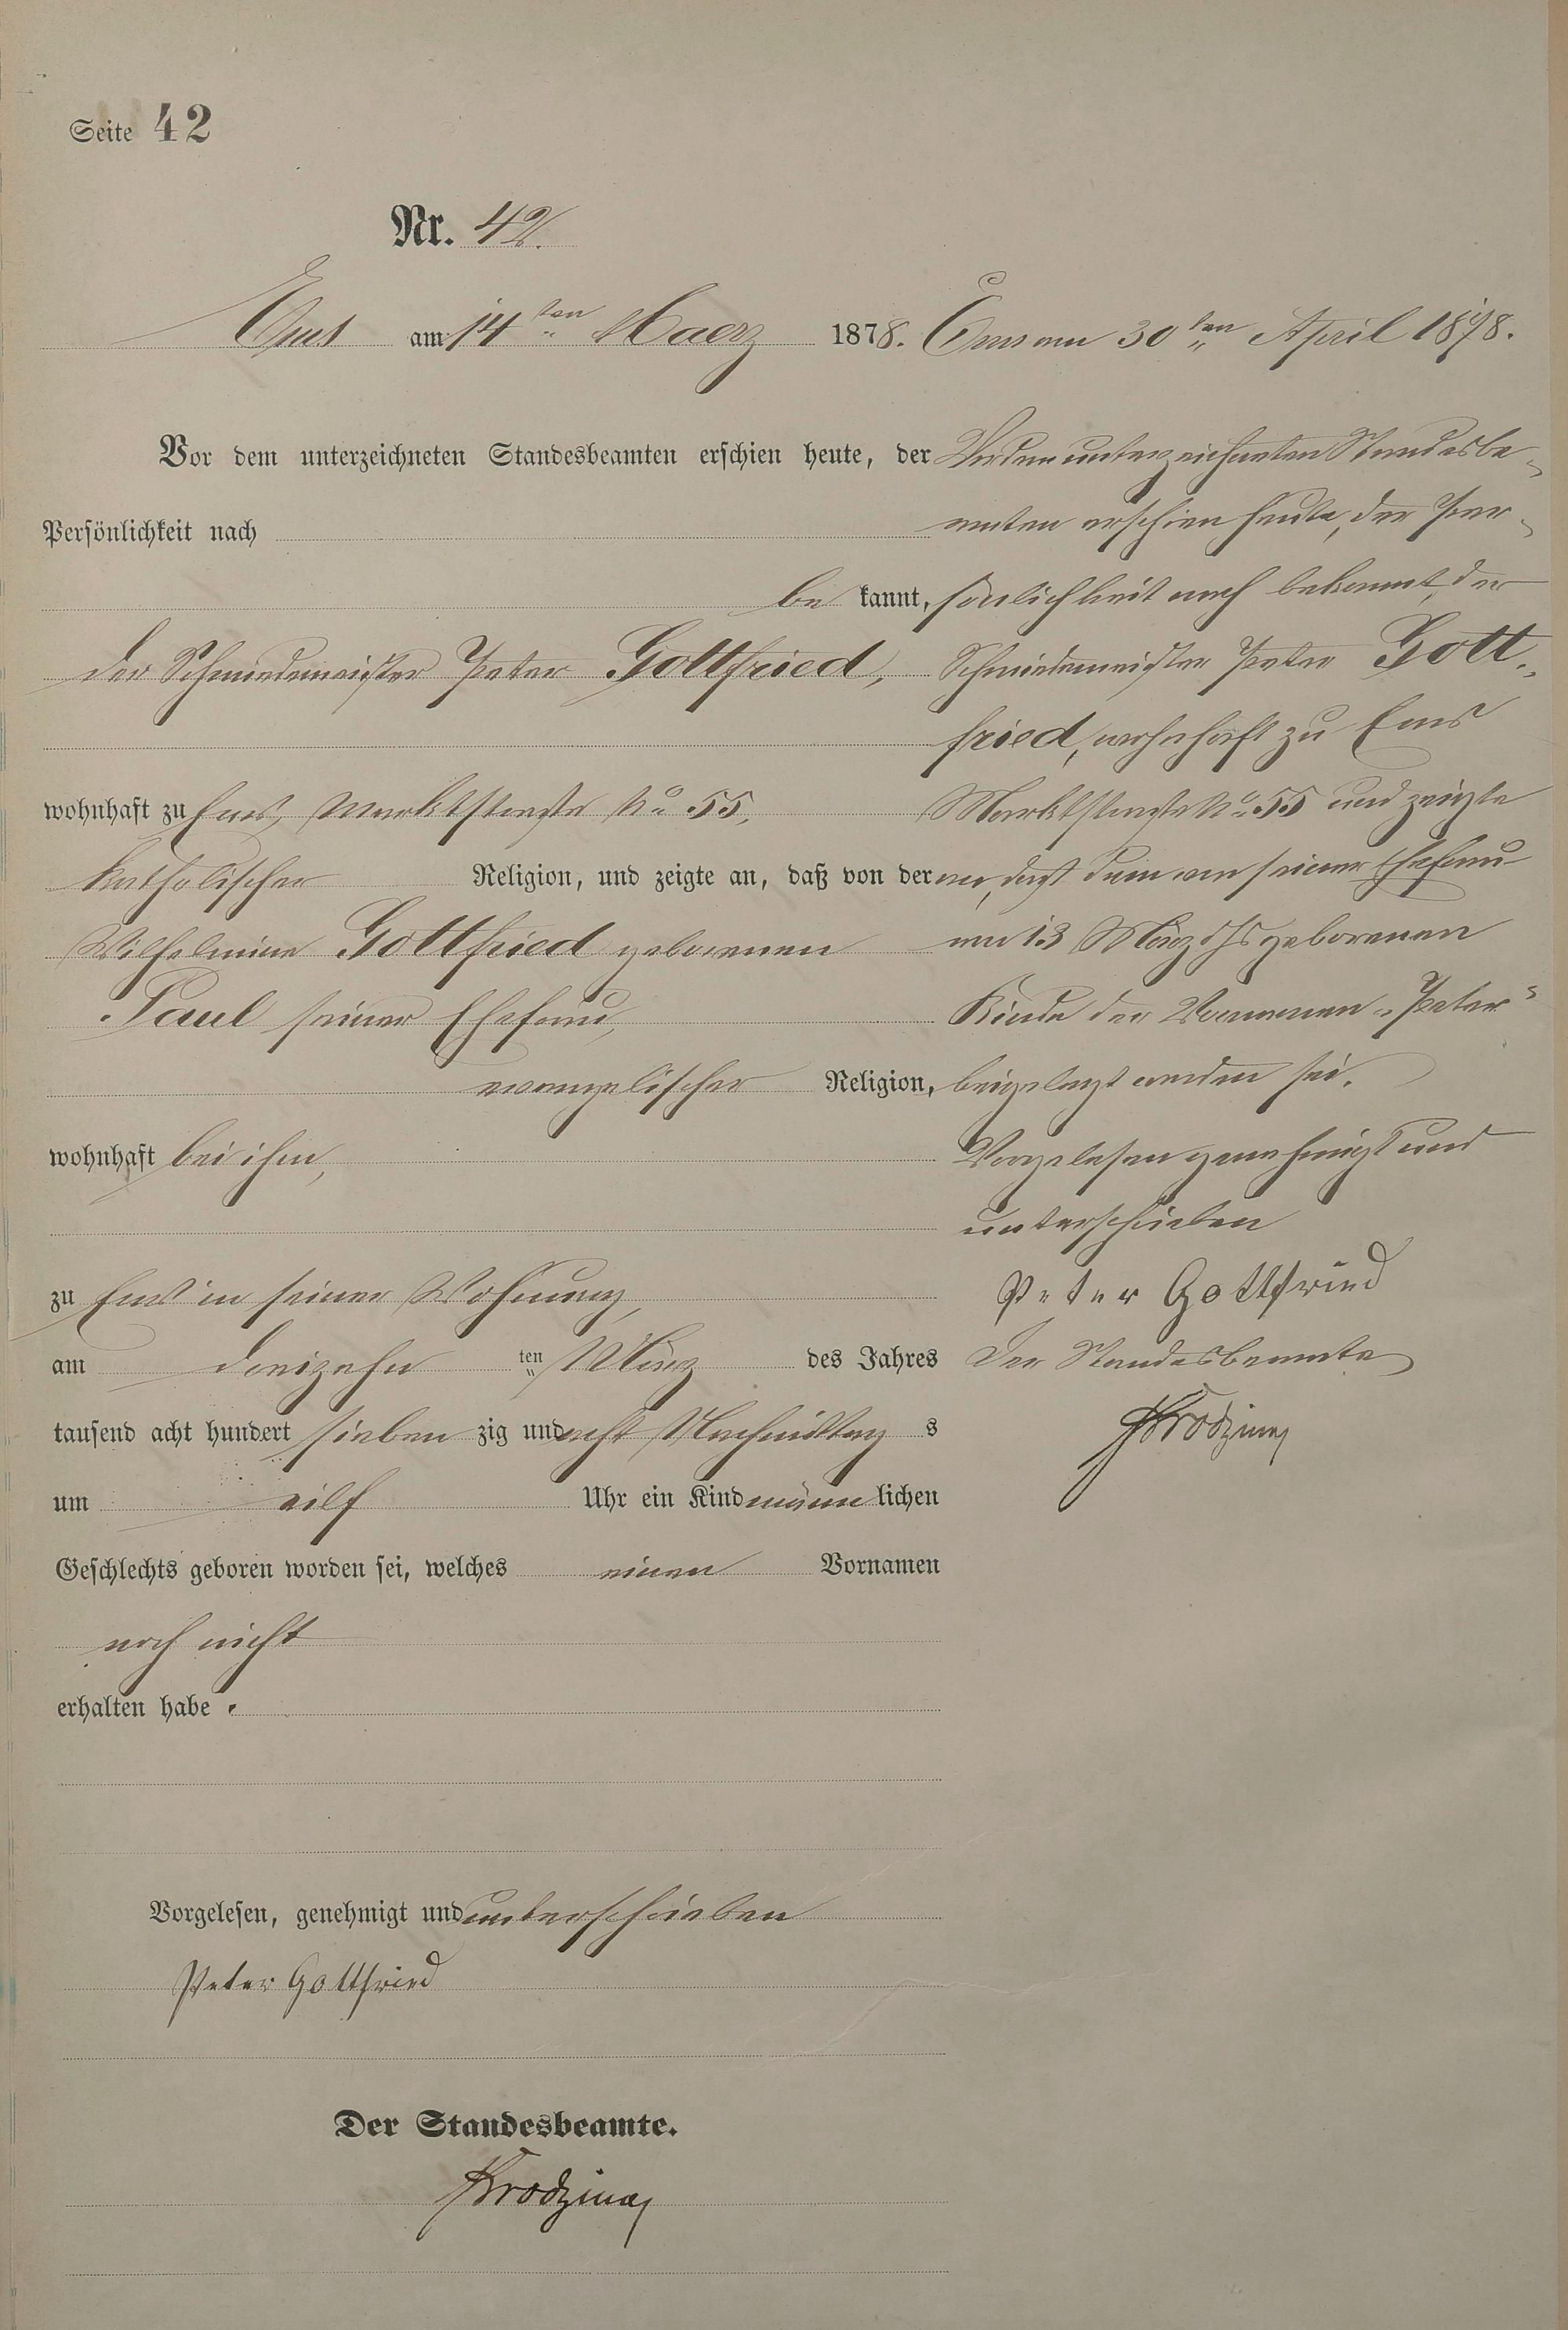 Seite 42
Nr. 42.
Ems am 14ten Maerz 1878.
Vor dem unterzeichneten Standesbeamten erschien heute, der
Persönlichkeit nach
be kannt,
der Schmiedemeister Peter Gottfried,
wohnhaft zu Ems, Marktstraße No 55,
katholischer Religion, und zeigte an, daß von der
Wilhelmine Gottfried geborenen
Paul seiner Ehefrau,
evangelischer Religion,
wohnhaft bei ihm,
zu Ems in seiner Wohnung,
am dreizehn ten März des Jahres
tausend acht hundert sieben zig und acht Nachmittag s
um eilf Uhr ein Kind männ lichen
Geschlechts geboren worden sei, welches einen Vornamen
noch nicht
erhalten habe.
Vorgelesen, genehmigt und unterschrieben
Peter Gottfried
Der Standesbeamte.
Ems am 30ten April 1878.
Vor dem unterzeichneten Standesbe-
amten erschien heute, der Per-
sönlichkeit nach bekannt, der
Schmiedemeister Peter Gott-
fried, wohnhaft zu Ems
Marktstraße No 55 und zeigte
an, daß dem von seiner Ehefrau
am 13 März d Js geborenen
Kinde der Vornamen „Peter"
beigelegt worden sei.
Vorgelesen genehmigt und
unterschrieben
Peter Gottfried
Der Standesbeamte